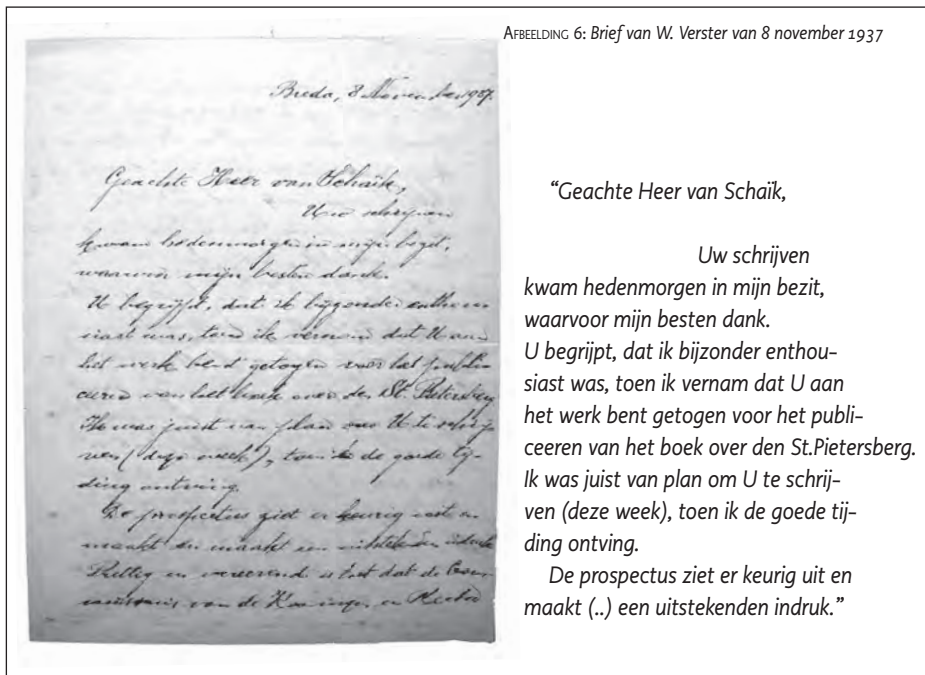 AFBEELDING 6: Brief van W. Verster van 8 november 1937
Breda, 8 November 1937.
Geachte Heer van Schaïk,
Uw schrijven
kwam hedenmorgen in mijn bezit,
waarvoor mijn besten dank.
U begrijpt, dat ik bijzonder enthou-
siast was, toen ik vernam dat U aan
het werk bent getogen voor het publi-
ceeren van het boek over den St. Pietersberg
Ik was juist van plan om U te schrij-
ven (deze week), toen ik de goede tij-
ding ontving.
De prospectus ziet er keurig uit en
maakt en maakt een uitstekenden indruk
en vereerend is het dat de Com-
missaris van de Koningin en
"Geachte Heer van Schaïk,
Uw schrijven
kwam hedenmorgen in mijn bezit,
waarvoor mijn besten dank.
U begrijpt, dat ik bijzonder enthou-
siast was, toen ik vernam dat U aan
het werk bent getogen voor het publi-
ceeren van het boek over den St.Pietersberg.
Ik was juist van plan om U te schrij-
ven (deze week), toen ik de goede tij-
ding ontving.
De prospectus ziet er keurig uit en
maakt (..) een uitstekenden indruk."